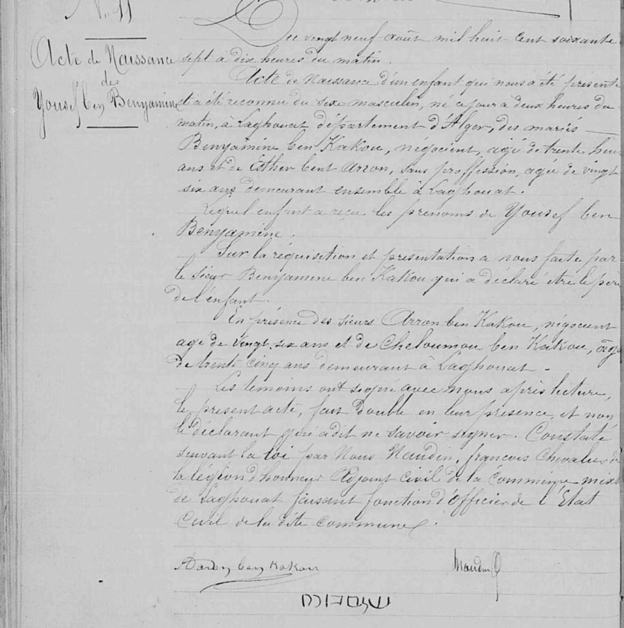 N. 11
Acte de Naissance
de
Yousef ben Benyamine
Le vingt neuf août mil huit cent soixante
sept a dix heures du matin.
Acte de Naissance d'un enfant qui nous a été présenté
et a été reconnu du sexe masculin, né ce jour a deux heures du
matin, à Laghouat département d'Alger, des mariés
Benyamine ben Kakou, négociant, agé de trente huit
ans et de Esther bent Arron, sans proffession, agée de vingt
six ans demeurant ensemble à Laghouat.
Lequel enfant a reçu les prenoms de Yousef ben
Benyamine.
Sur la réquisition et présentation a nous faite par
le Sieur Benyamine ben Kakou qui a déclaré être le père
de l'enfant.
En présence des sieurs Arron ben Kakou, négociant
agé de vingt six ans et de Cheloumou ben Kakou, âgé
de trente cinq ans demeurant à Laghouat.
Les témoins ont signé avec nous après lecture,
le présent acte, fait double en leur présence, et non
le déclarant qui a dit ne savoir signer. Constaté
suivant la loi par Nous Naudin, françois Chevalier de
la légion d'honneur Adjoint Civil de la Commune mixte
de Laghouat faisant fonction d'Officier de l'Etat
Civil de la dite commune.
ben Kakou